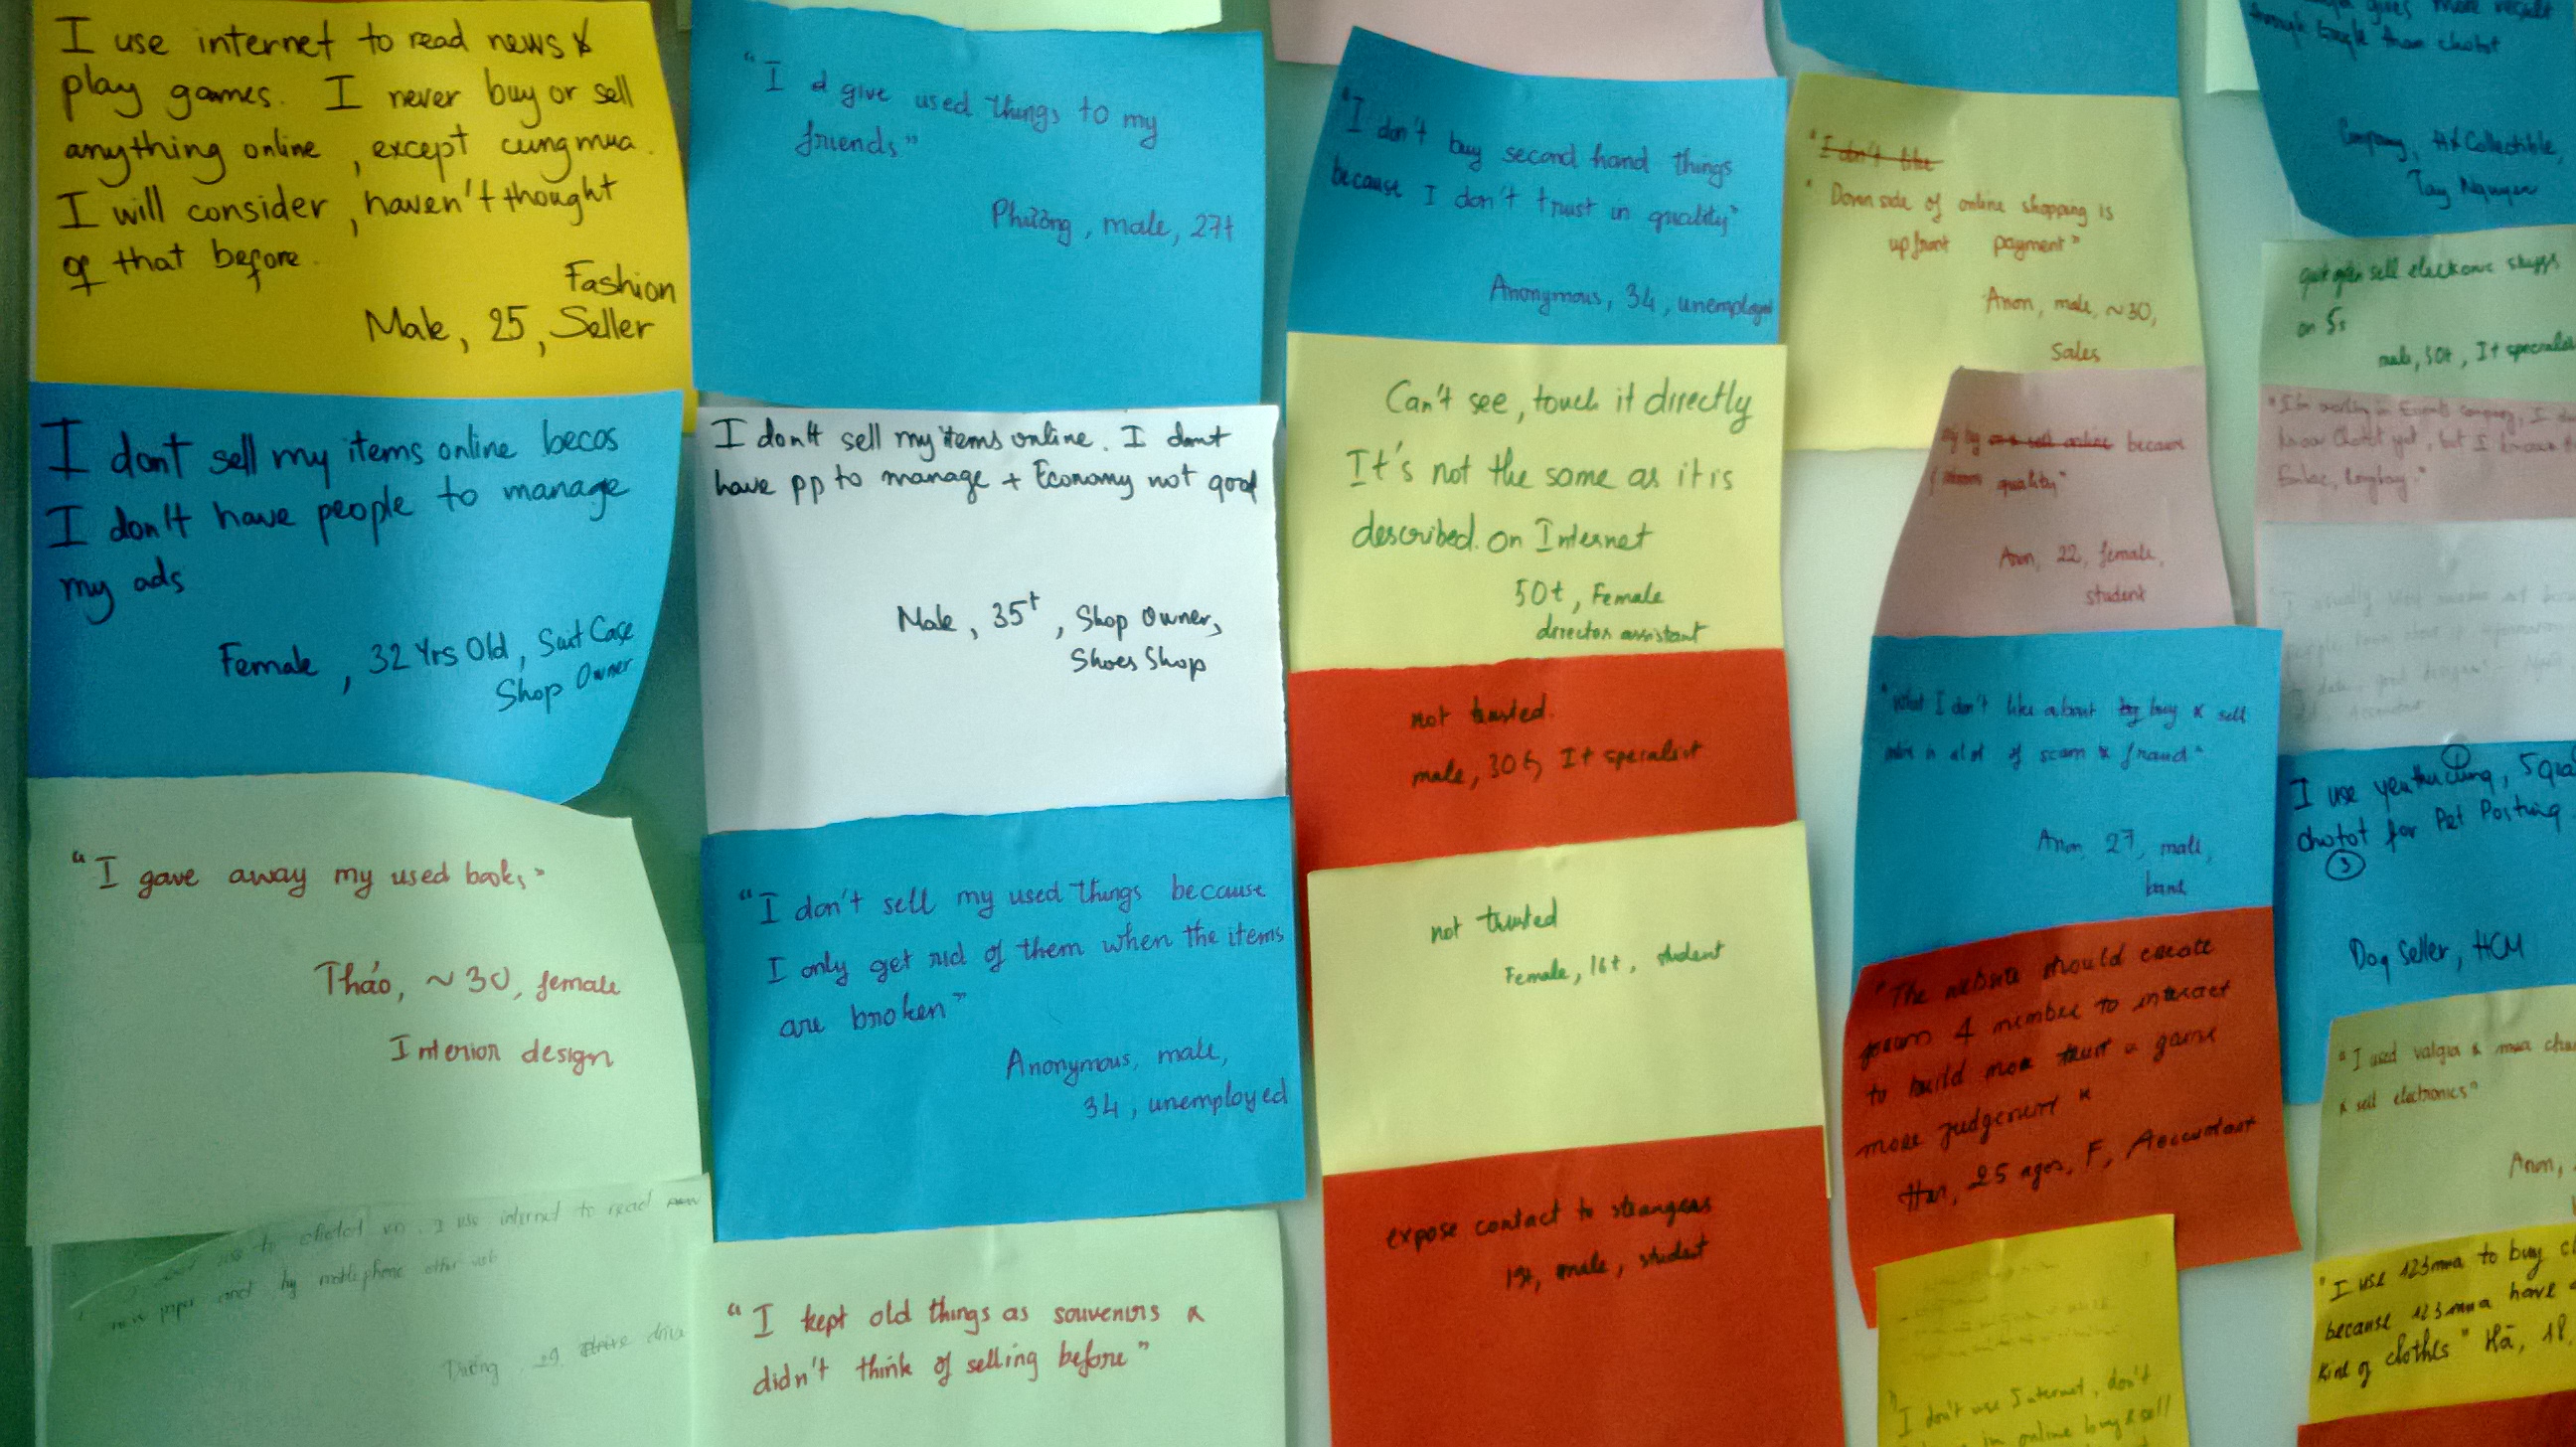 I use internet to read news &
play games. I never buy or sell
anything online, except cungmua.
I will consider, haven't thought
of that before.
Fashion
Male, 25, Seller
I dont sell my items online becos
I don't have people to manage
my ads
Female, 32 Yrs Old, Suit Case
Shop Owner
"I gave away my used books"
Thảo, ~30, female
Interior design
to chotot vn. I use internet to read
paper and by mobile phone other web
29 drive
"I d give used things to my
friends"
Phường, male, 27t
I don't sell my items online. I dont
have pp to manage + Economy not good
Male, 35t, Shop Owner,
Shoes Shop
"I don't sell my used things because
I only get rid of them when the items
are broken"
Anonymous, male,
34, unemployed
"I kept old things as souvenirs &
didn't think of selling before"
"I don't buy second hand things
because I don't trust in quality"
Anonymous, 34, unemployed
Can't see, touch it directly
It's not the same as it is
described on Internet
50t, Female
director assistant
not trusted.
male, 30t, It specialist
not trusted
Female, 16t, student
expose contact to strangers
male, student
"I don't like
"Down side of online shopping is
upfront payment"
Anon, male, ~30,
Sales
because
quality"
Anon, 22, female,
student
"What I don't like about buy & sell
of scam & fraud"
Anon, 27, male,
bank
"The website should create
forum 4 member to interact
to build more trust & game
more judgement"
Han, 25 ages, F, Accountant
"I don't use Internet, don't
online buy & sell
gives more result
through Google than chotot
Company, HX Collectible,
Tay Nguyen
sell electronic stuffs
on 5s
male, 30t, It specialist
"I'm working in Events company, I
know Chotot yet, but I know
①
I use yeuthucung, 5
chotot for Pet Posting
③
Dog Seller, HCM
"I used vatgia & mua
& sell electronics"
Anon,
"I use 123mua to buy
because 123mua have
kind of clothes" Hà, 18,